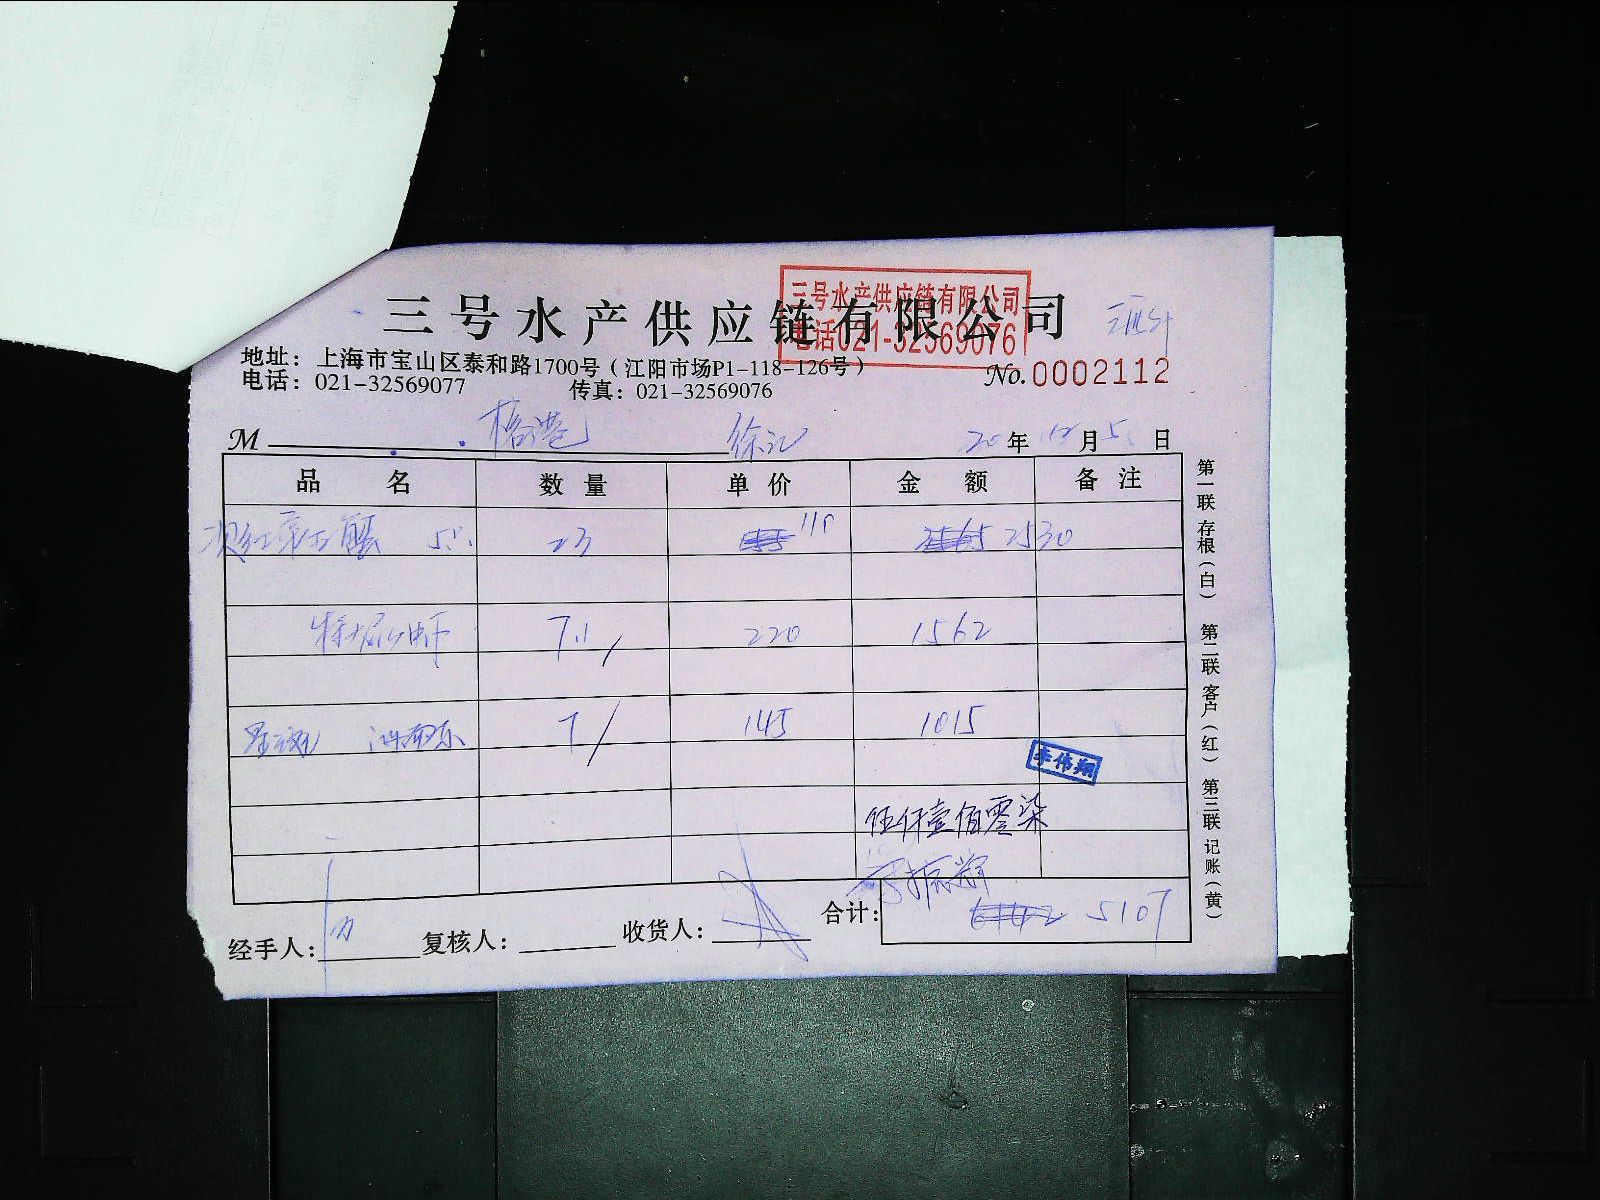 三号水产供应链有限公司
三号水产供应链有限公司
电话021-32569076
地址：上海市宝山区泰和路1700号（江阳市场P1-118-126号）
电话：021-32569077 传真：021-32569076
No.0002112
M 徐记 20年12月5日
品名 数量 单价 金额 备注
23 110 2530
7.1 220 1562
星斑 7 145 1015
李伟翔
伍仟壹佰零柒
合计： 5107
经手人： 复核人： 收货人：
第一联 存根（白） 第二联 客户（红） 第三联 记账（黄）